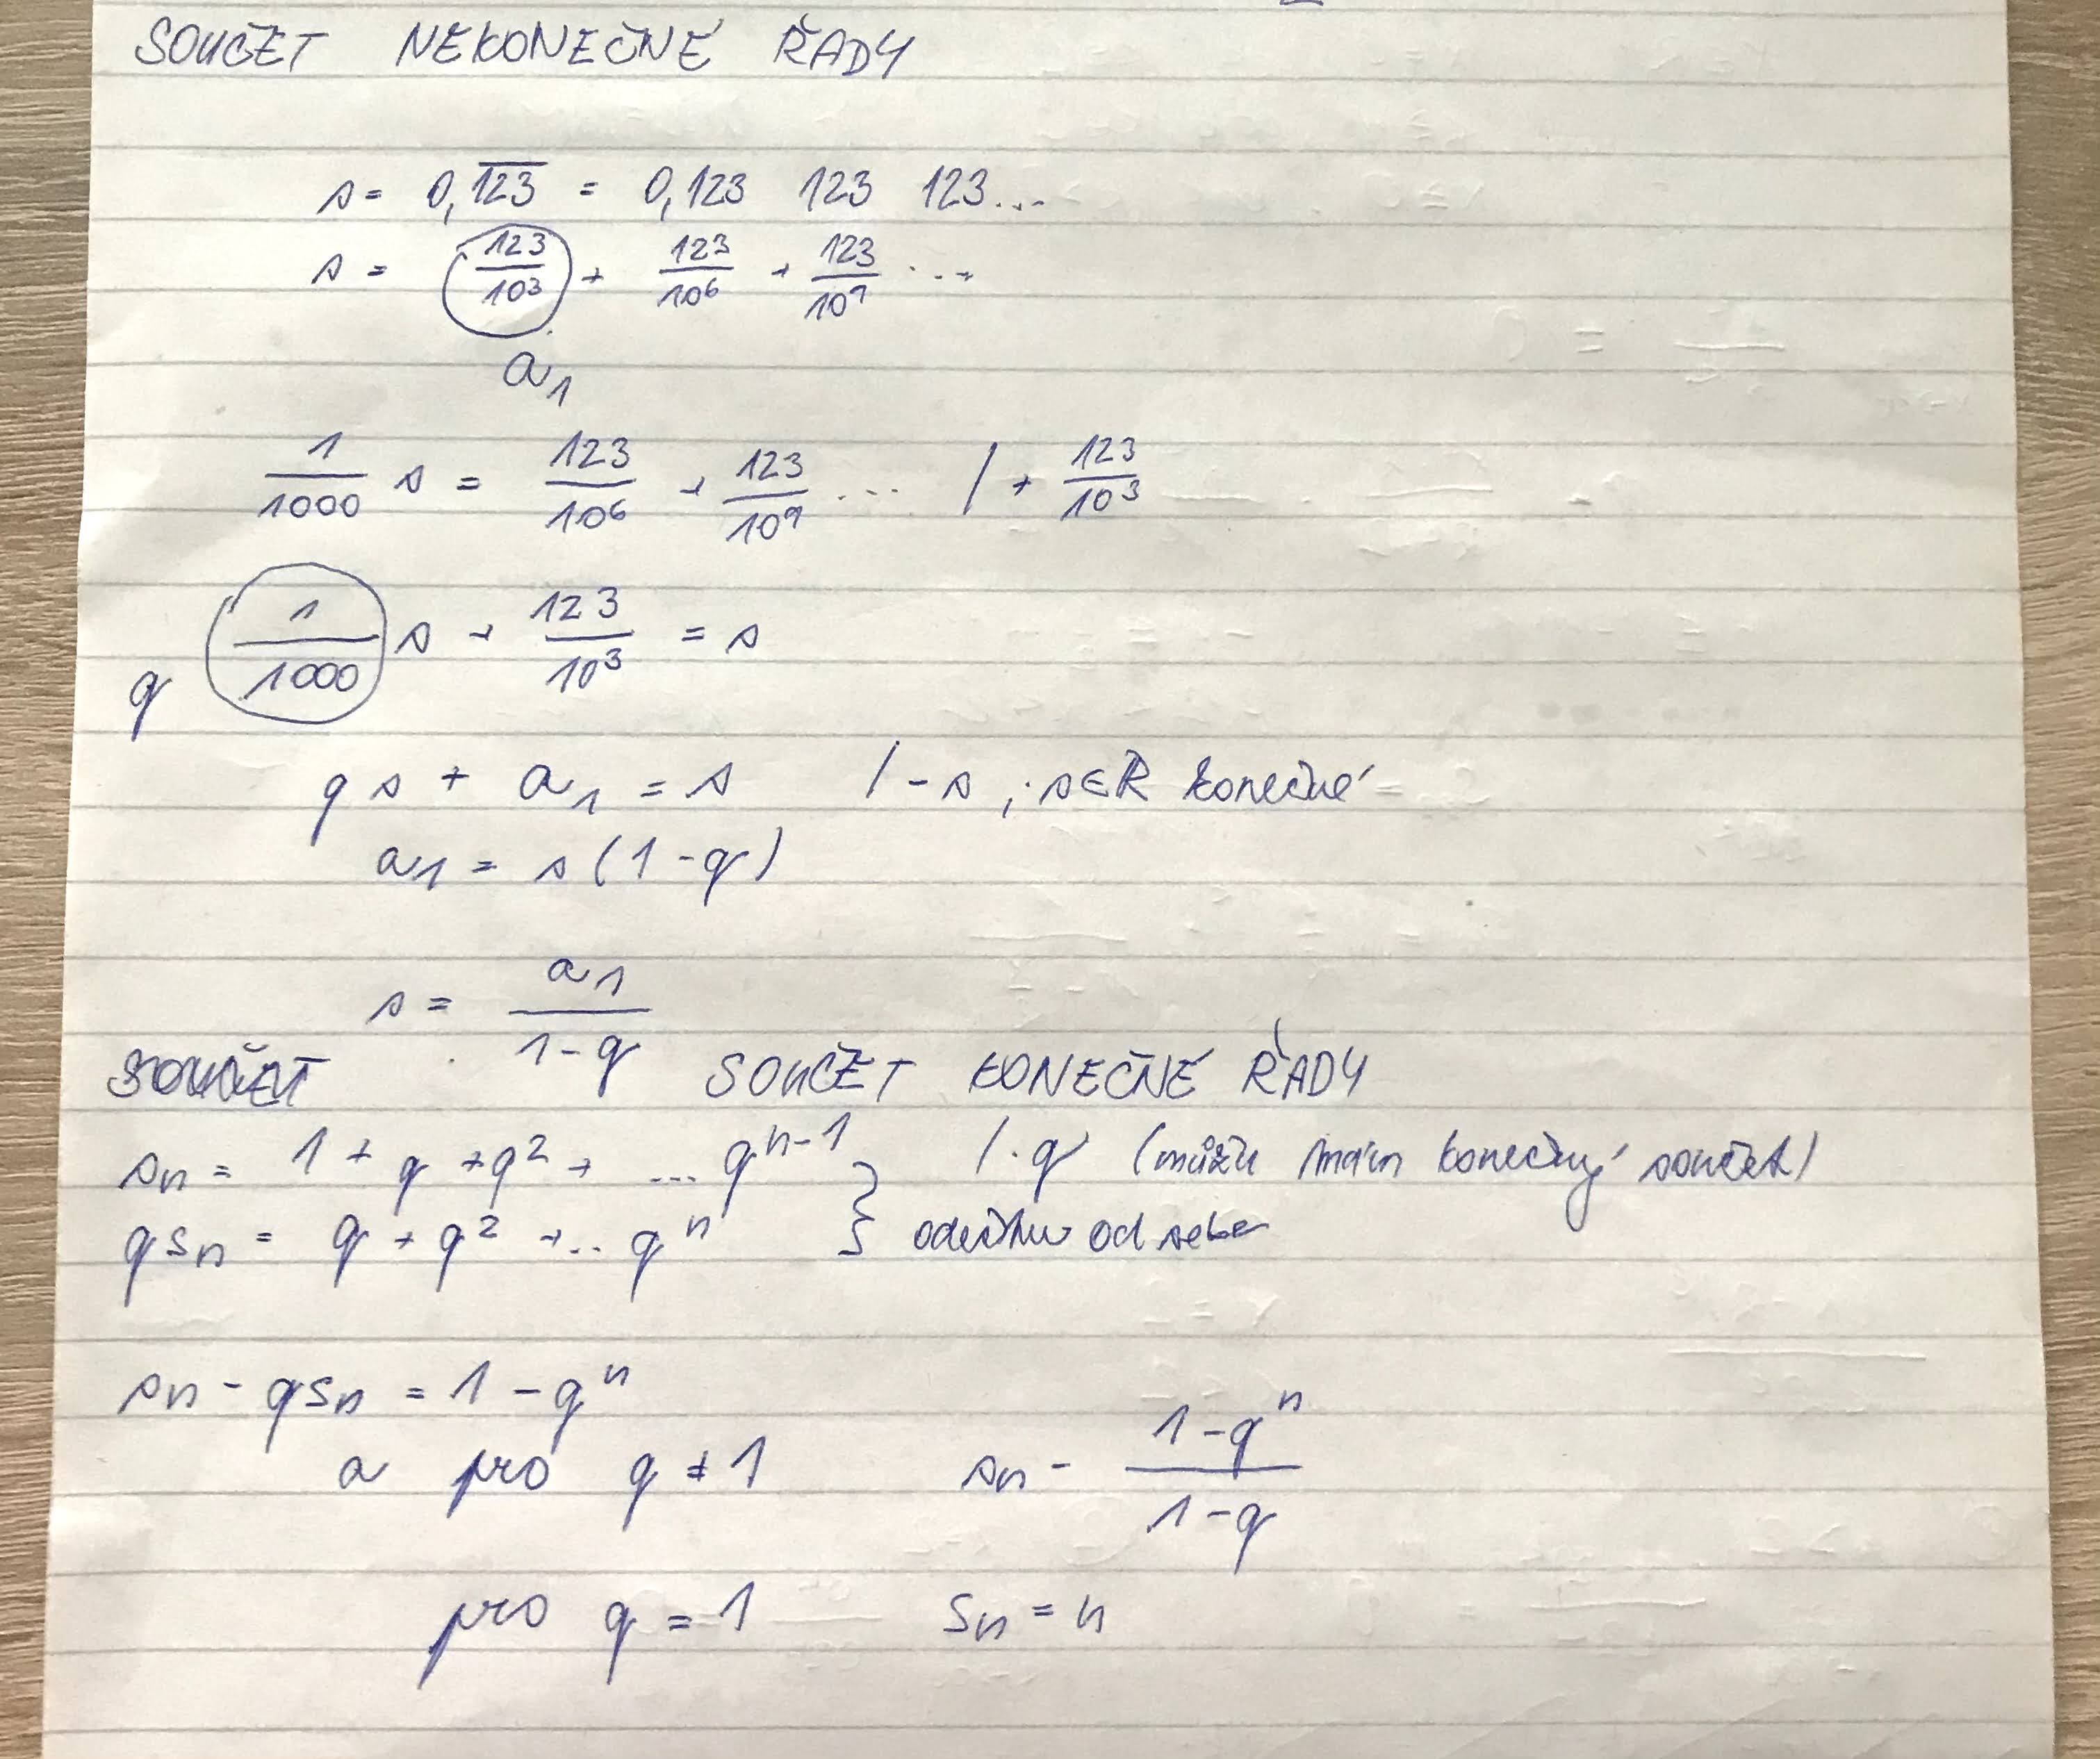 SOUČET NEKONEČNÉ ŘADY
s = 0,\overline{123} = 0,123 123 123...
s = \frac{123}{10^3} + \frac{123}{10^6} + \frac{123}{10^9} ...
a_1
\frac{1}{1000} s = \frac{123}{10^6} + \frac{123}{10^9} ... / + \frac{123}{10^3}
q \frac{1}{1000} s + \frac{123}{10^3} = s
q s + a_1 = s / - s ; s ∈ R konečné
a_1 = s (1 - q)
s = \frac{a_1}{1-q}
SOUČET KONEČNÉ ŘADY
s_n = 1 + q + q^2 + ... q^{n-1} / . q (můžu mám konečný součet)
q s_n = q + q^2 + .. q^n } odečtu od sebe
s_n - q s_n = 1 - q^n
a pro q ≠ 1 s_n - \frac{1-q^n}{1-q}
pro q = 1 s_n = n